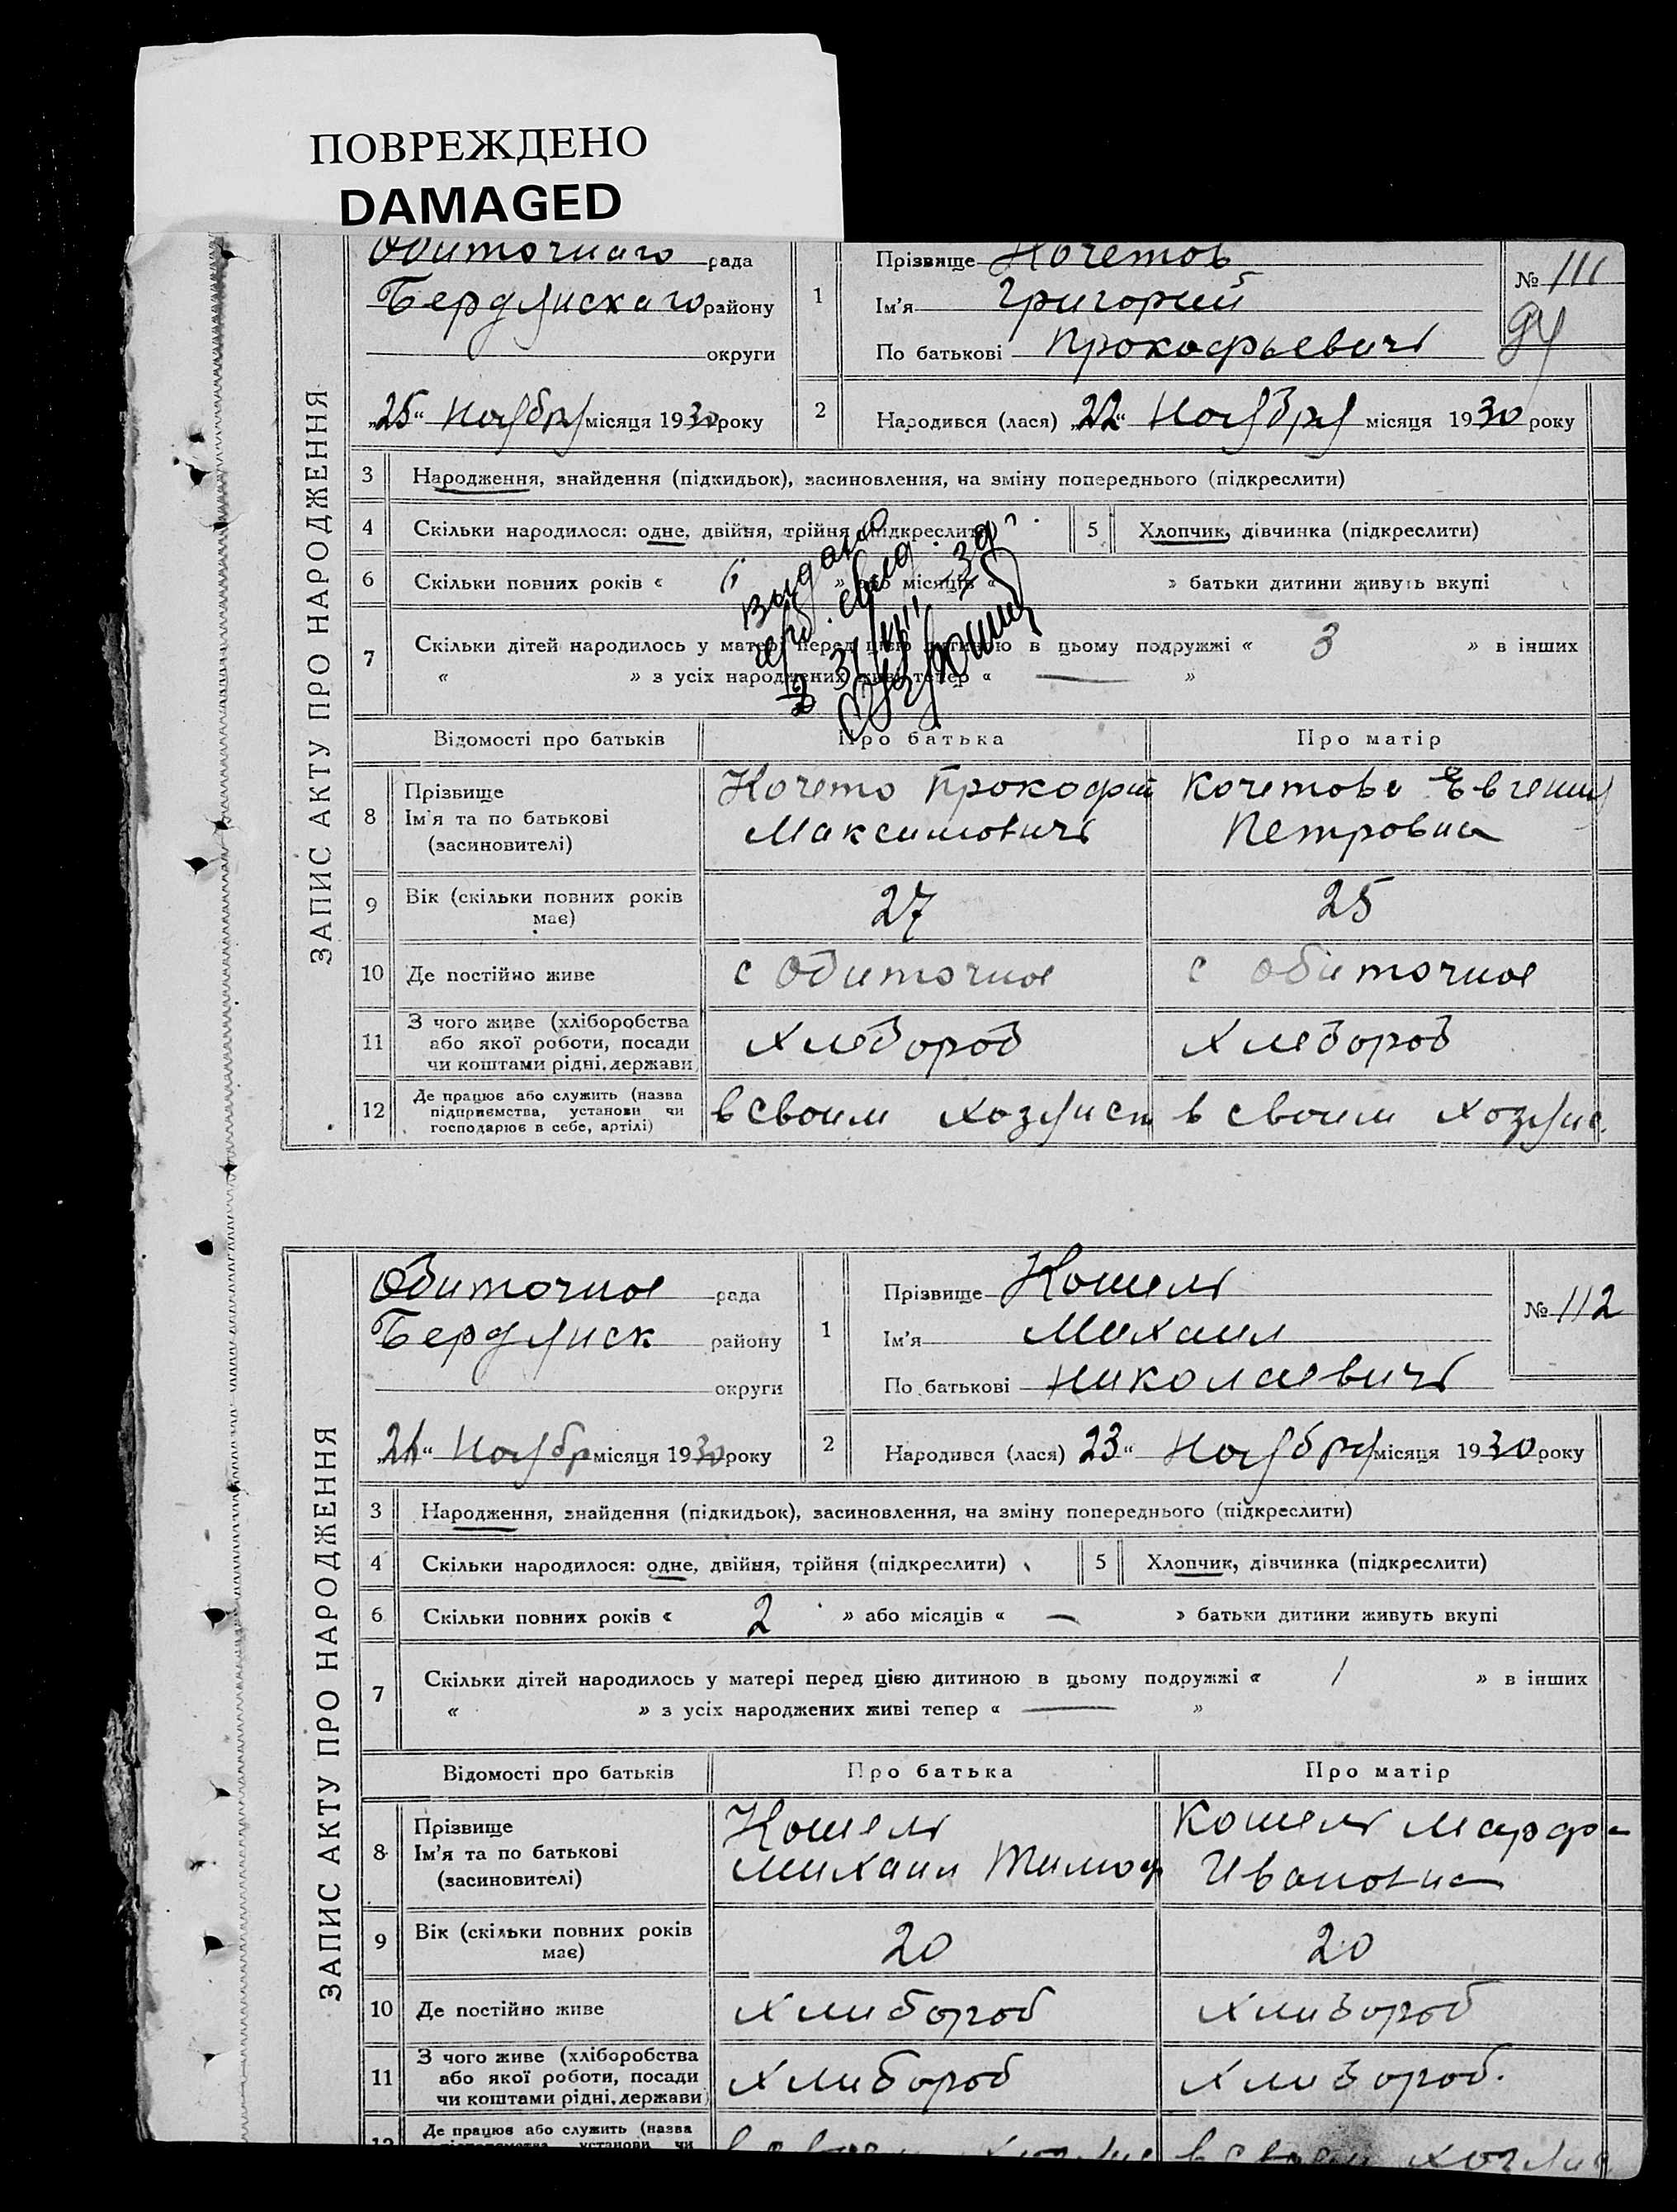 ПОВРЕЖДЕНО
DAMAGED
ЗАПИС АКТУ ПРО НАРОДЖЕННЯ
Обиточнаго рада
Бердянскаго району
округи
„25“ Ноября місяця 1930 року
1
Прізвище Кочетов
Ім'я Григорий
По батькові Прокофьевич
№ 111
94
2 Народився (лася) „22“ Ноября місяця 1930 року
3 Народження, знайдення (підкидьок), засиновлення, на зміну попереднього (підкреслити)
4 Скільки народилося: одне, двійня, трійня (підкреслити)
5 Хлопчик, дівчинка (підкреслити)
6 Скільки повних років « » або місяців « » батьки дитини живуть вкупі
7 Скільки дітей народилось у матері перед цією дитиною в цьому подружжі « 3 » в інших
« » з усіх народжених живі тепер « — »
Видано
свид.
Відомості про батьків Про батька Про матір
8 Прізвище
Ім'я та по батькові
(засиновителі)
Кочето Прокофий
Максимович
Кочетова Евгения
Петровна
9 Вік (скільки повних років має) 27 25
10 Де постійно живе с Обиточное с Обиточное
11 З чого живе (хліборобства
або якої роботи, посади
чи коштами рідні, держави)
Хлебороб Хлебороб
12 Де працює або служить (назва
підприємства, установи чи
господарює в себе, артілі)
в своим хозяист в своим хозяис.
ЗАПИС АКТУ ПРО НАРОДЖЕННЯ
Обиточное рада
Бердянск району
округи
Ноябр місяця 1930 року
1
Прізвище Кошель
Ім'я Михаил
По батькові Николаевич
№ 112
2 Народився (лася) 23“ Ноября місяця 1930 року
3 Народження, знайдення (підкидьок), засиновлення, на зміну попереднього (підкреслити)
4 Скільки народилося: одне, двійня, трійня (підкреслити)
5 Хлопчик, дівчинка (підкреслити)
6 Скільки повних років « 2 » або місяців « — » батьки дитини живуть вкупі
7 Скільки дітей народилось у матері перед цією дитиною в цьому подружжі « 1 » в інших
« » з усіх народжених живі тепер « — »
Відомості про батьків Про батька Про матір
8 Прізвище
Ім'я та по батькові
(засиновителі)
Кошель
Михаил Тимоф
Кошель Марфа
Ивановна
9 Вік (скільки повних років має) 20 20
10 Де постійно живе Хлибороб Хлибороб
11 З чого живе (хліборобства
або якої роботи, посади
чи коштами рідні, держави)
Хлибороб Хлибороб.
12 Де працює або служить (назва
підприємства, установи чи